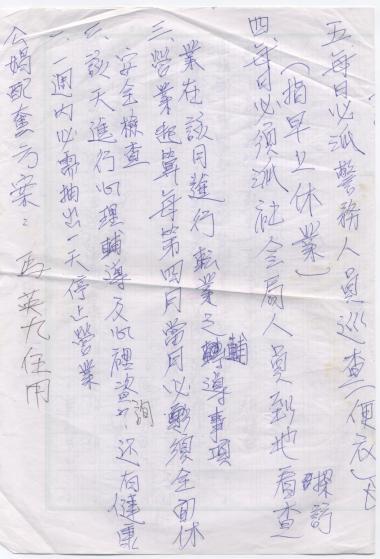 公娼配套方案：馬英九任用
一、一週內必需抽出一天停止營業
二、該天進行心理輔導及心裡諮詢还有健康
安全檢查
三、營業起算每第四月當月必須全面休
業在該月進行転業之輔導事項
四、每日必須派社会局人員到地看查探訪
(指早上休業)
五、每日必派警務人員巡查(便衣)